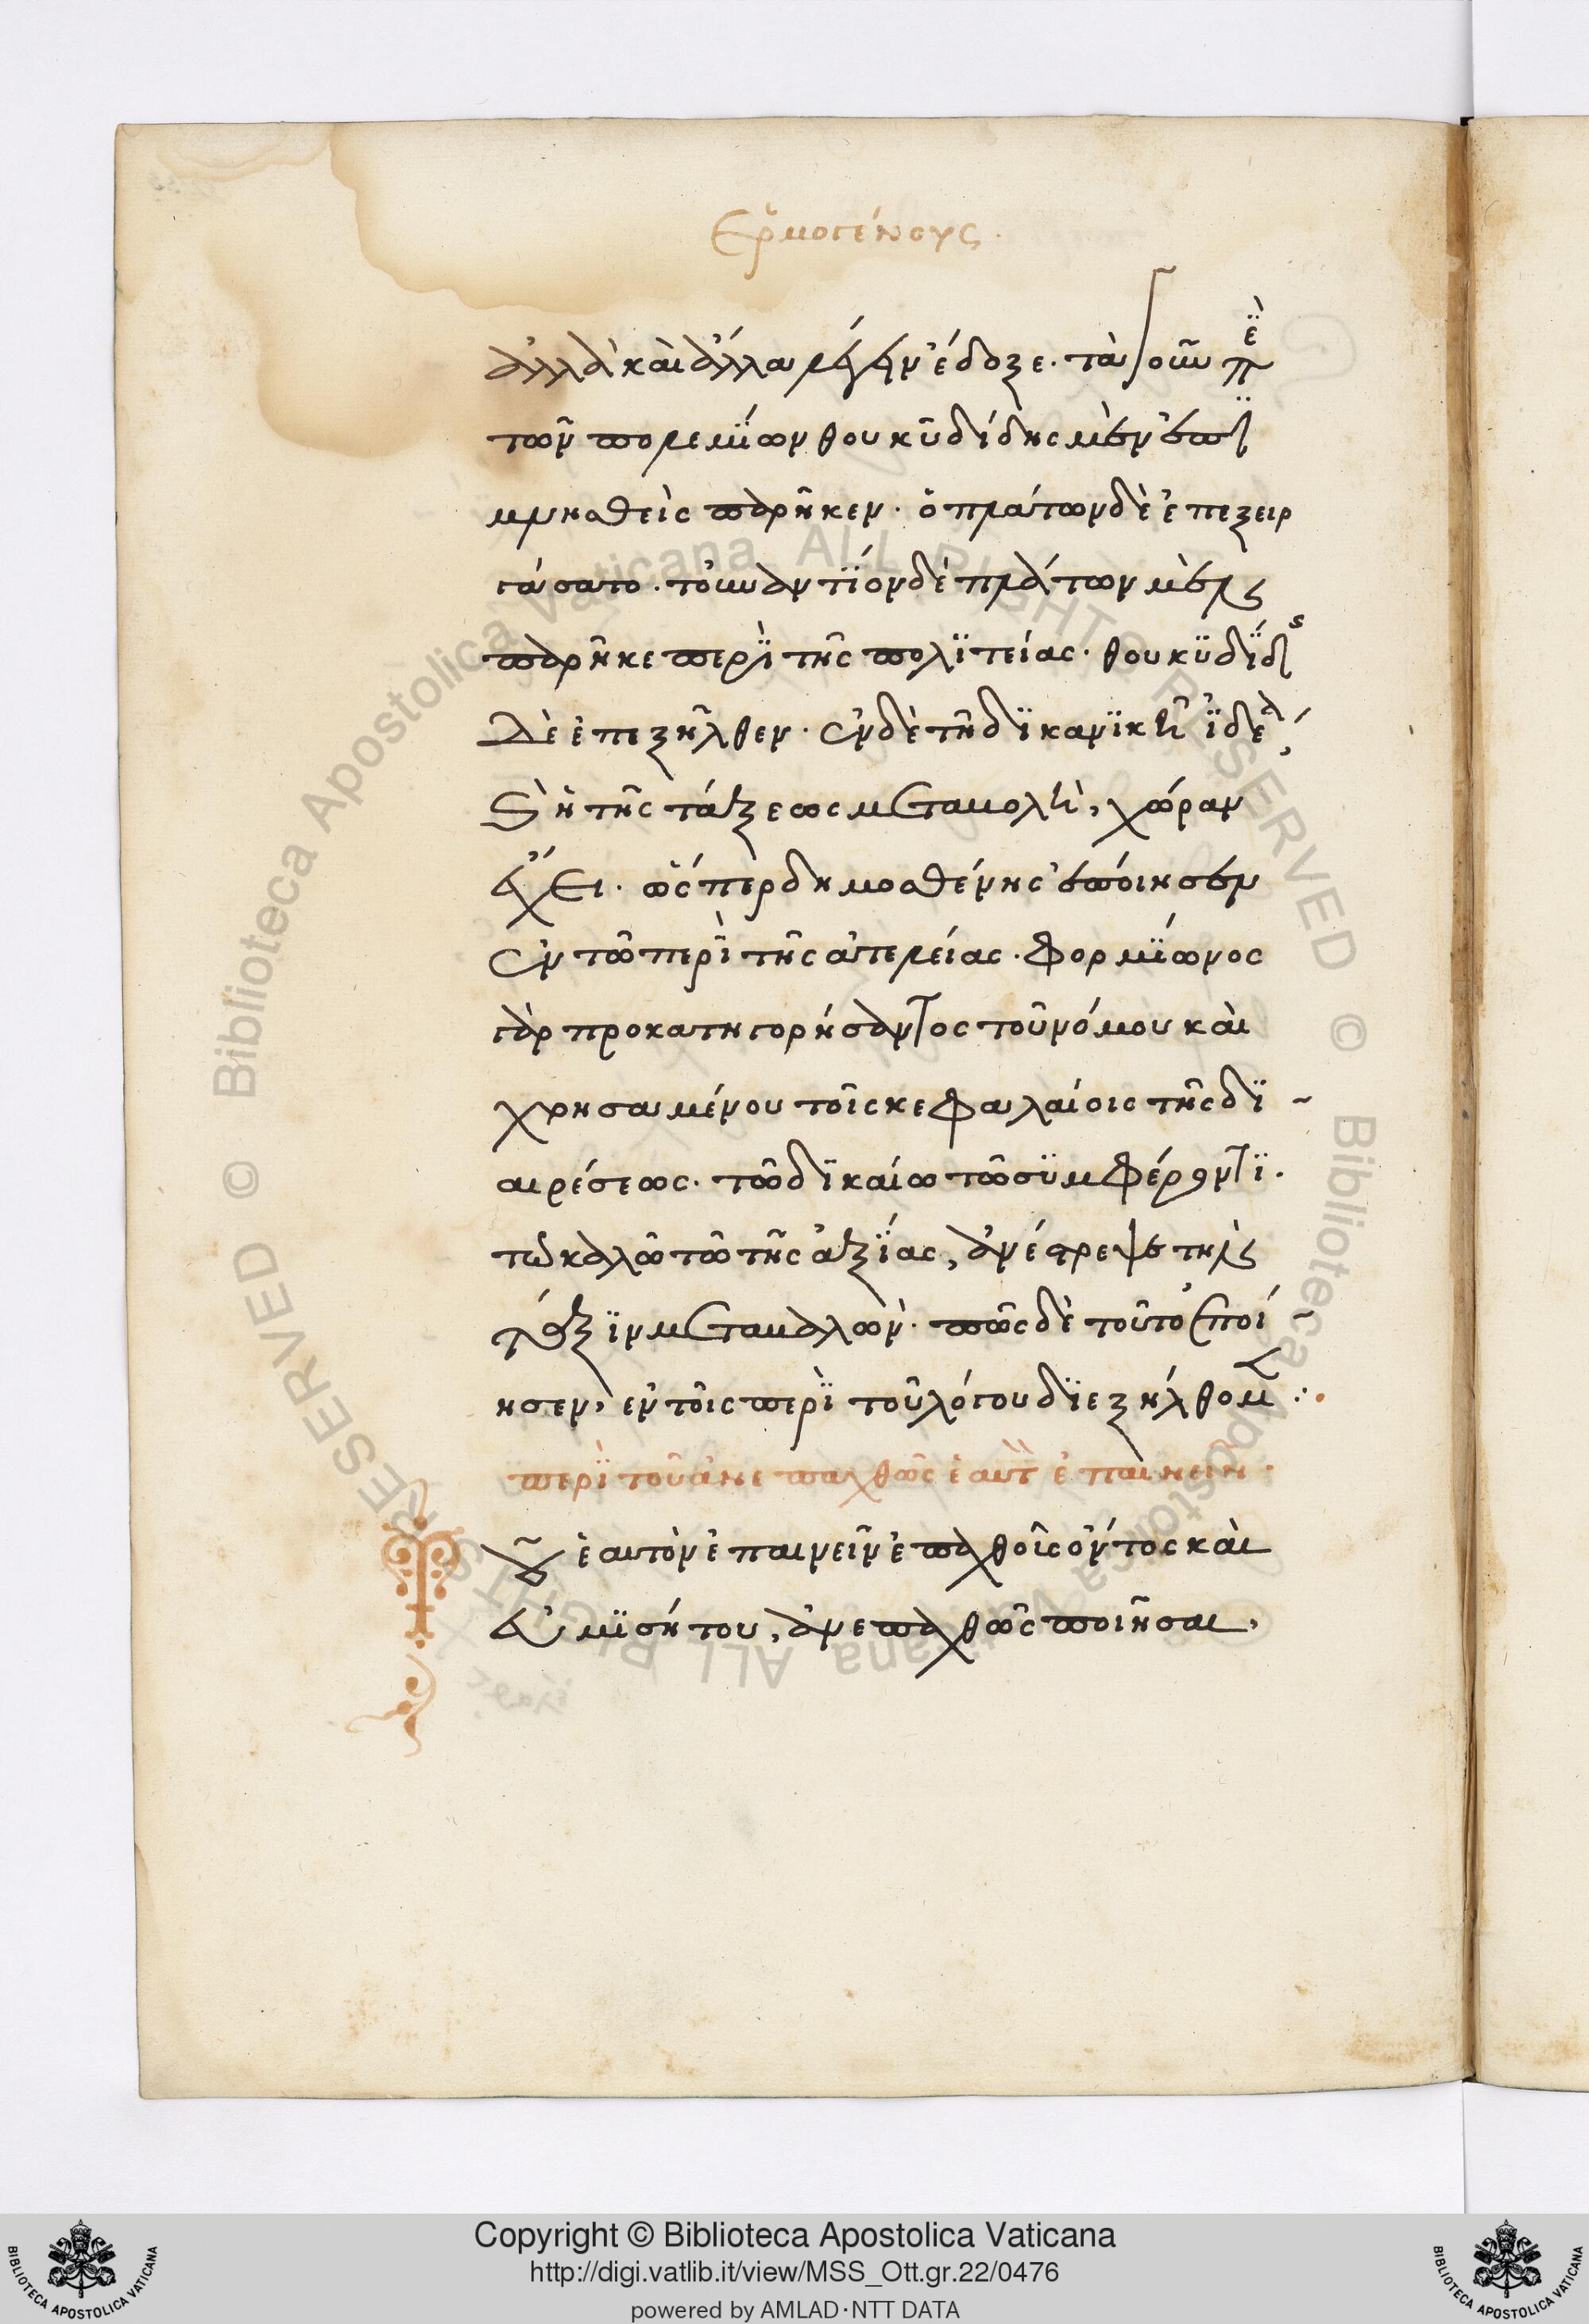 Ἑρμογένους.
ἀλλὰ καὶ ἄλλα λέγειν ἔδοξε. τὰ γοῦν περὶ
τῶν πολεμίων θουκυδίδης μὲν ἐπι
μνησθεὶς παρῆκεν. ὁ πλάτων δὲ ἐπεξειρ
γάσατο. τοὐναντίον δὲ πλάτων μὲν
παρῆκε περὶ τῆς πολιτείας. θουκυδίδης
δὲ ἐπεξῆλθεν. ἐν δὲ τῆ δικανικῆ ἰδέα,
καὶ ἡ τῆς τάξεως μεταβολὴ, χώραν
ἔχει. ὥσπερ δημοσθένης ἐποίησεν
ἐν τῶ περὶ τῆς ἀτελείας. φορμίωνος
γὰρ προκατηγορήσαντος τοῦ νόμου καὶ
χρησαμένου τοῖς κεφαλαίοις τῆς δι-
αιρέσεως. τῶ δικαίω τῶ συμφέροντι.
τῶ καλῶ τῶ τῆς ἀξίας, ἀνέστρεψε τὴν
τάξιν μεταβαλών. πῶς δὲ τοῦτο ἐποί-
ησεν, ἐν τοῖς περὶ τοῦ λόγου διεξήλθομεν :.
περὶ τοῦ ἀνεπαχθῶς ἑαυτὸν ἐπαινεῖν.
τοῦ ἑαυτὸν ἐπαινεῖν ἐπαχθοῦς ὄντος καὶ
εὐμισήτου, ἀνεπαχθῶς ποιῆσαι,
Copyright © Biblioteca Apostolica Vaticana
http://digi.vatlib.it/view/MSS_Ott.gr.22/0476
powered by AMLAD·NTT DATA
BIBLIOTECA APOSTOLICA VATICANA
BIBLIOTECA APOSTOLICA VATICANA
© Biblioteca Apostolica Vaticana ALL RIGHTS RESERVED
© Biblioteca Apostolica Vaticana ALL RIGHTS RESERVED